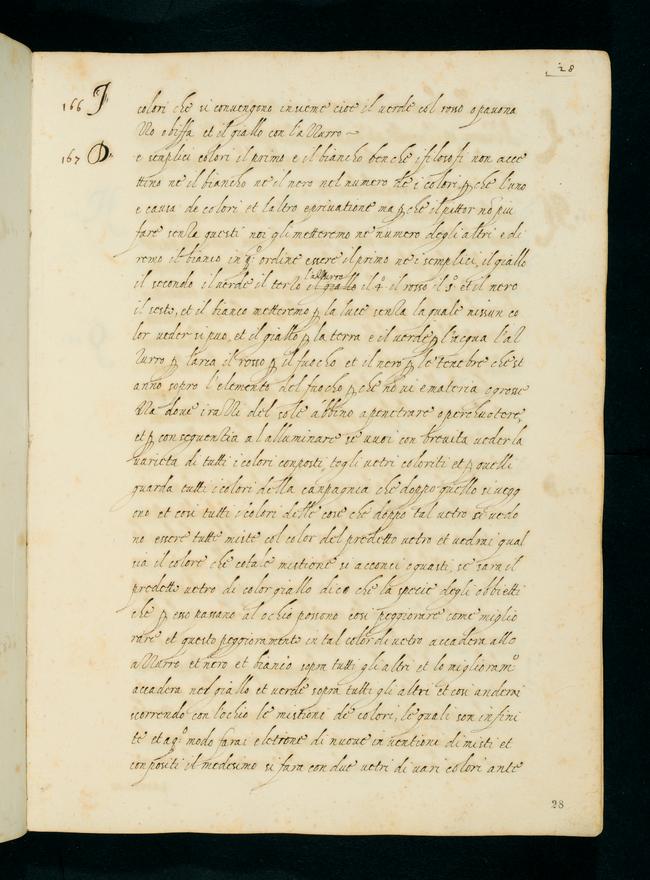 28
166 I colori che si convengono insieme cioe il verde col rosso o pavona
zzo o biffa et il giallo con l'azzurro ~
167 De semplici colori il primo e il biancho benche i filosofi non acce
ttino ne il biancho ne il nero nel numero de i colori, p che l'uno
e causa de colori et l'altro e privatione ma p che il pittor nō più
fare senza questi noi gli metteremo ne numero degli altri e di
remo il bianco in qº ordine essere il primo ne i semplici, il giallo
il secondo il verde il terzo l'azzurro il giallo il 4º il rosso il 5º et il nero
il sesto, et il bianco metteremo p la luce senza la quale nissun co
lor veder si puo, et il giallo p la terra e il verde p l'acqua l'az
zurro p l'aria il rosso p il fuocho et il nero p le tenebre che st
anno sopro l'elemento del fuocho p che nō vi e materia o grosse
zza dove i razzi del sole abbino a penetrare o percuotere,
et p conseguentia al alluminare se vuoi con brevita veder la
varieta di tutti i colori conposti, togli vetri coloriti et p quelli
guarda tutti i colori della campagnia che doppo quello si vegg
ono et cosi tutti i colori delle cose che doppo tal vetro si vedo
no essere tutte miste col color del predetto vetro et vedrai qual
sia il colore che cotale mistione si acconci o guasti, se sara il
predetto vetro di color giallo dico che la specie degli obbietti
che p esso passano al ochio possono cosi peggiorare come miglio
rare et questo peggioramento in tal color di vetro accadera allo
azzurro et nero et bianco sopra tutti gli altri et lo miglioramº
accadera nel giallo et verde sopra tutti gli altri et cosi anderai
scorrendo con l'ochio le mistioni de colori, le quali son infini
te et a qº modo farai eletione di nuove inventione di misti et
conpositi il medesimo si fara con due vetri di vari colori ante
28